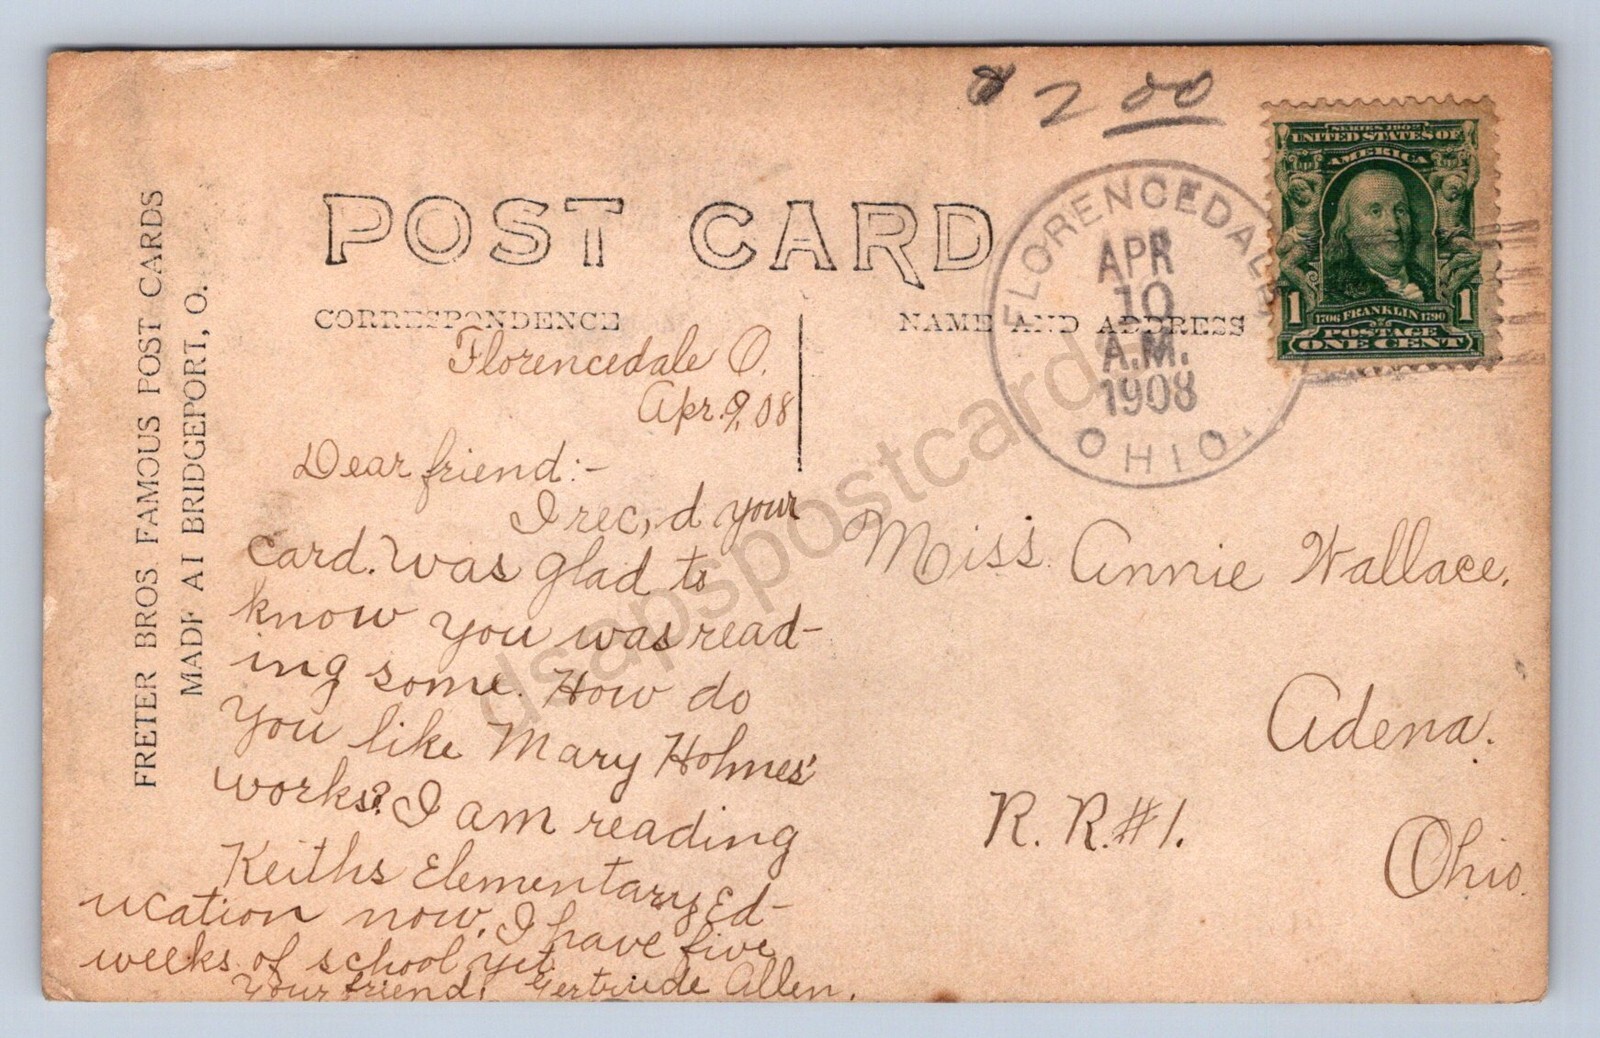 $ 2 00
SERIES 1902
UNITED STATES OF
AMERICA
1706 FRANKLIN 1790
1 1
POSTAGE
ONE CENT
FLORENCEDALE
APR
10
A.M.
1908
OHIO.
POST CARD
CORRESPONDENCE
NAME AND ADDRESS
FRETER BROS FAMOUS POST CARDS
MADE AT BRIDGEPORT, O.
Florencedale O.
Apr. 9, 08
Dear friend:-
I rec,d your
card. Was glad to
know you was read-
ing some. How do
you like Mary Holmes'
works? I am reading
Keiths Elementary Ed-
ucation now. I have five
weeks of school yet.
Your friend, Gertrude Allen.
Miss Annie Wallace.
Adena.
R. R. #1.
Ohio.
dsapspostcards